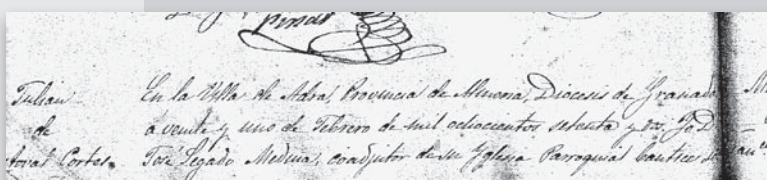 Pinar
Julian
de
toval Cortes
En la Villa de Adra, Provincia de Almeria, Diocesis de Granada
a veinte y uno de Febrero de mil ochocientos setenta y dos. Yo D
José Legado Medina, coadjutor de su Yglesia Parroquial bautice